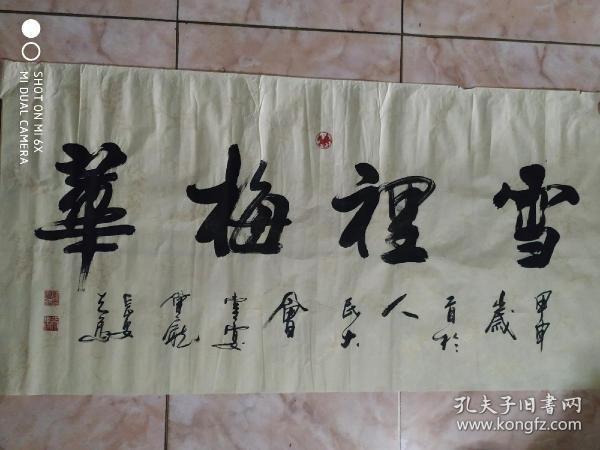 雪裡梅華
甲申
歲
首於
人
民大
會
堂宴
SHOT ON MI 6X
MI DUAL CAMERA
孔夫子旧书网
www.kongfz.com